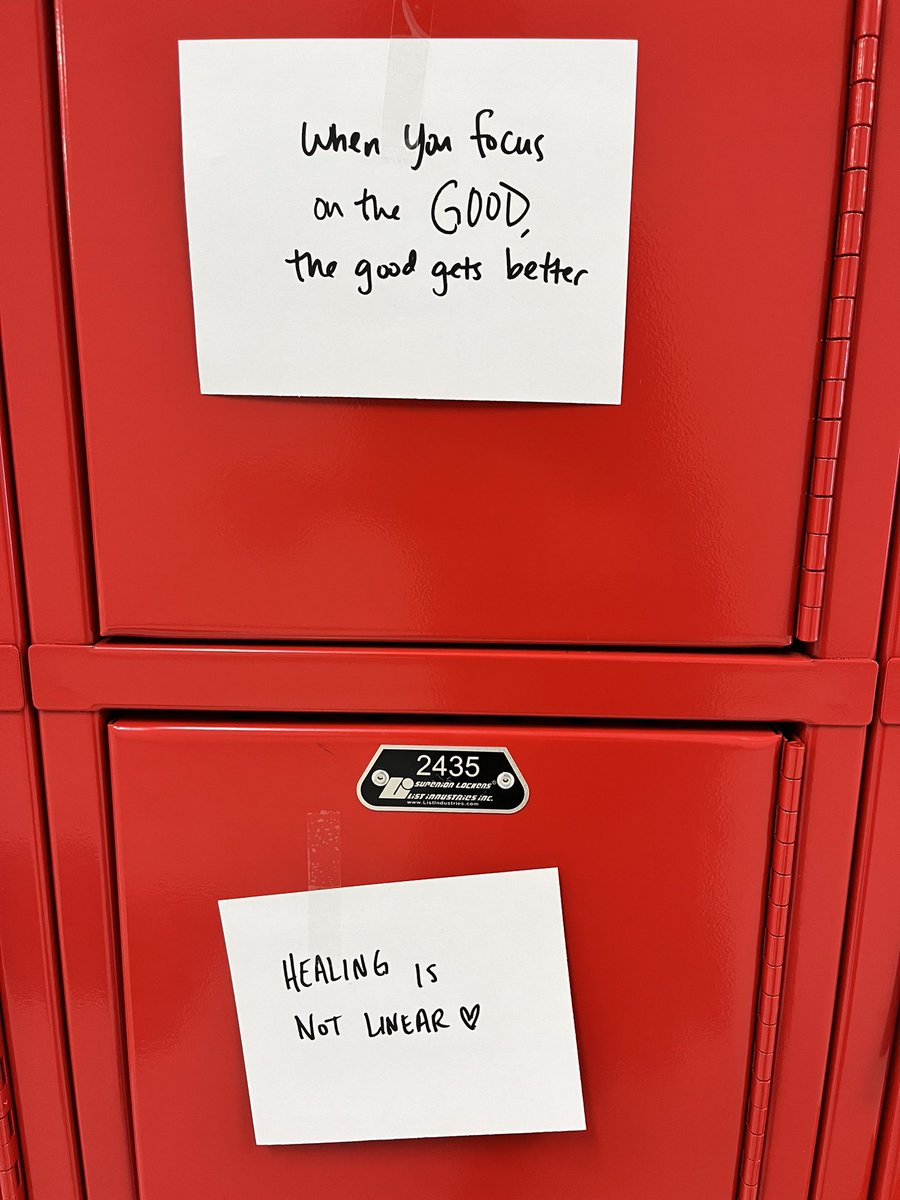 When you focus
on the GOOD,
the good gets better
2435
SUPERIOR LOCKERS®
LIST INDUSTRIES INC.
www.ListIndustries.com
HEALING IS
NOT LINEAR ♡